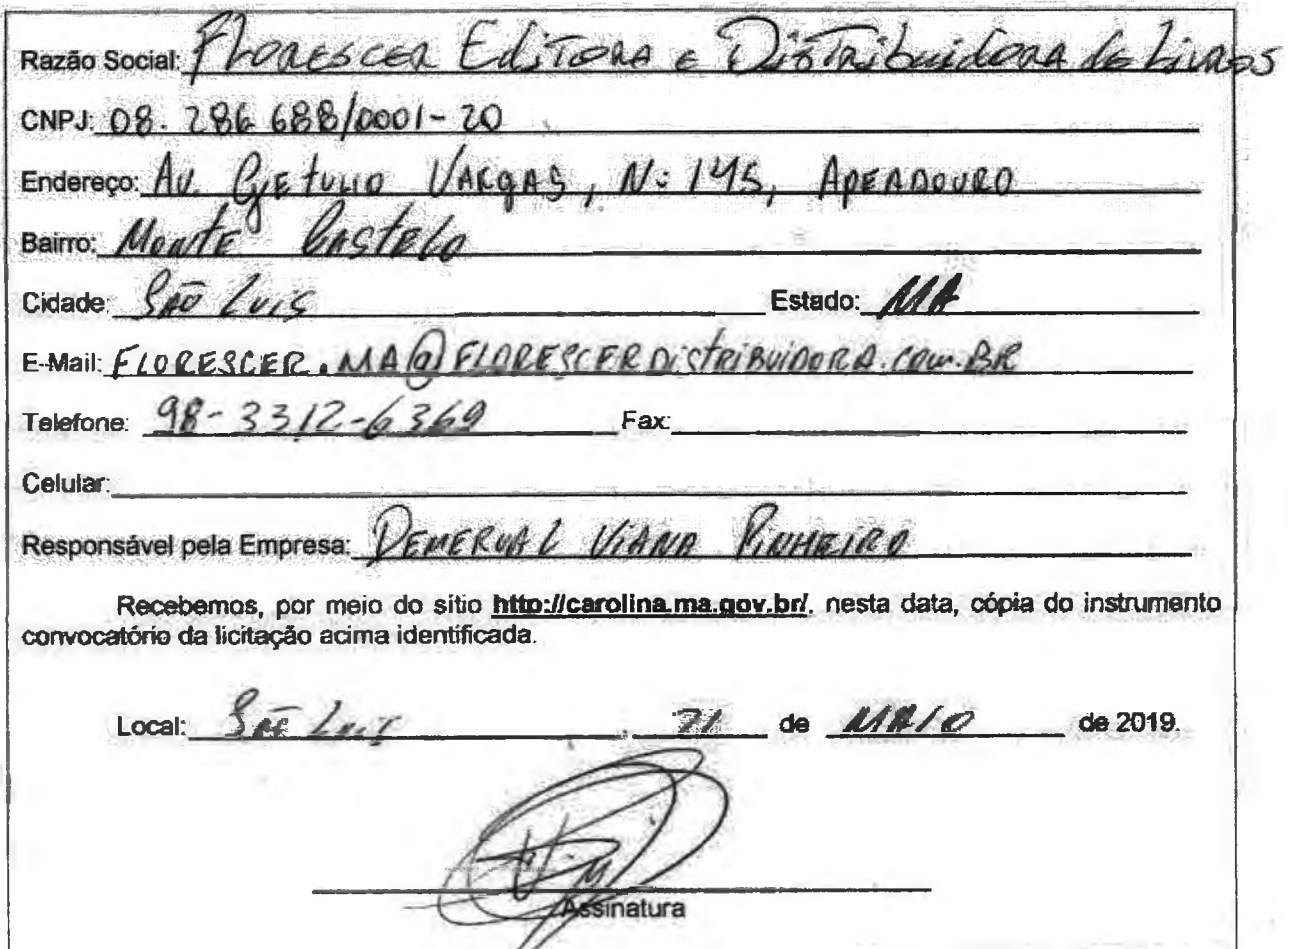 Razão Social: Florescer Editora e Distribuidora de Livros
CNPJ: 08.286.688/0001-20
Endereço: Av. Getulio Vargas, N: 145, Apeadouro
Bairro: Monte Castelo
Cidade: São Luis Estado: MA
E-Mail: FLORESCER.MA@FLORESCERDISTRIBUIDORA.COM.BR
Telefone: 98-3312-6369 Fax:
Celular:
Responsável pela Empresa: Demerval Viana Pinheiro
Recebemos, por meio do sítio http://carolina.ma.gov.br/, nesta data, cópia do instrumento
convocatório da licitação acima identificada.
Local: São Luis, 21 de MAIO de 2019.
Assinatura